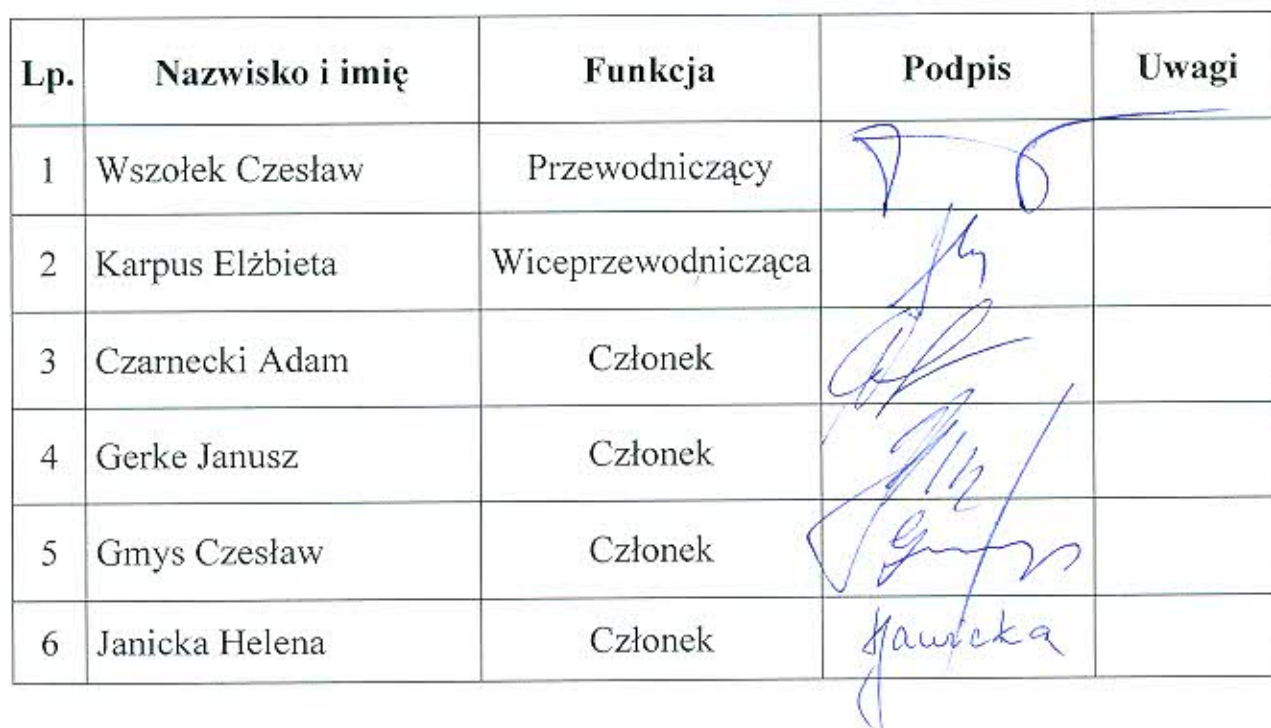 Lp. Nazwisko i imię Funkcja Podpis Uwagi
1 Wszołek Czesław Przewodniczący
2 Karpus Elżbieta Wiceprzewodnicząca
3 Czarnecki Adam Członek
4 Gerke Janusz Członek
5 Gmys Czesław Członek
6 Janicka Helena Członek HJanicka